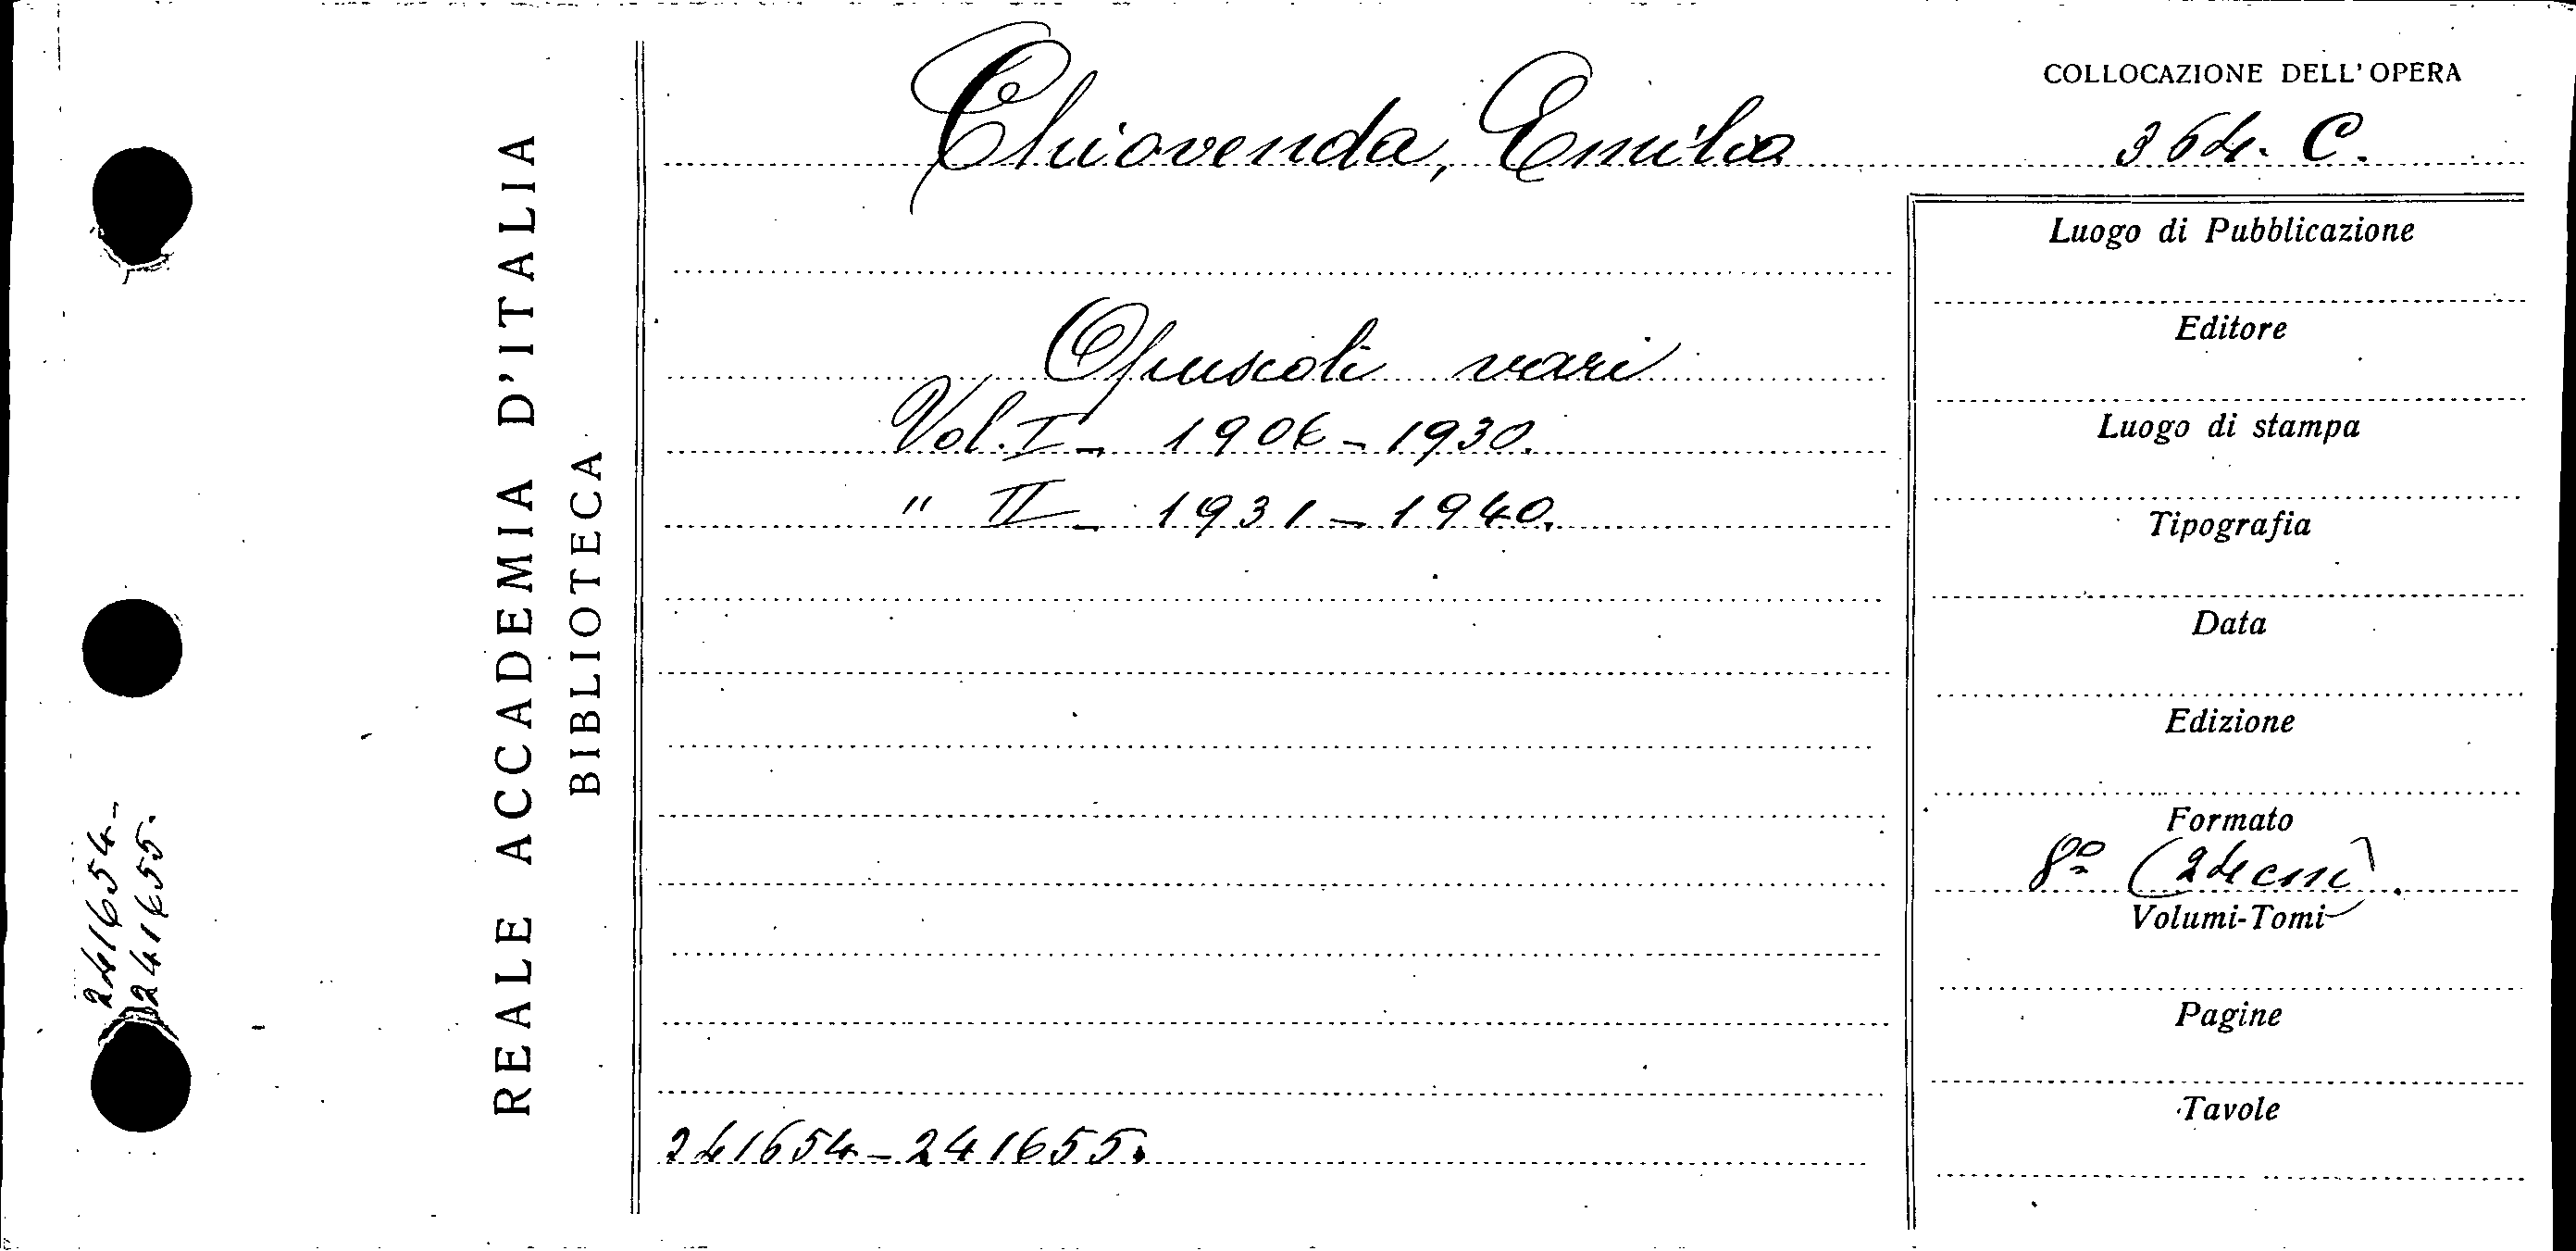 241654-
241655.
REALE ACCADEMIA D'ITALIA
BIBLIOTECA
Chiovenda, Emilio
Opuscoli vari
Vol. I - 1906-1930.
" II - 1931-1940.
241654-241655.
COLLOCAZIONE DELL'OPERA
364. C.
Luogo di Pubblicazione
Editore
Luogo di stampa
Tipografia
Data
Edizione
Formato
8º (24 cm).
Volumi-Tomi
Pagine
Tavole